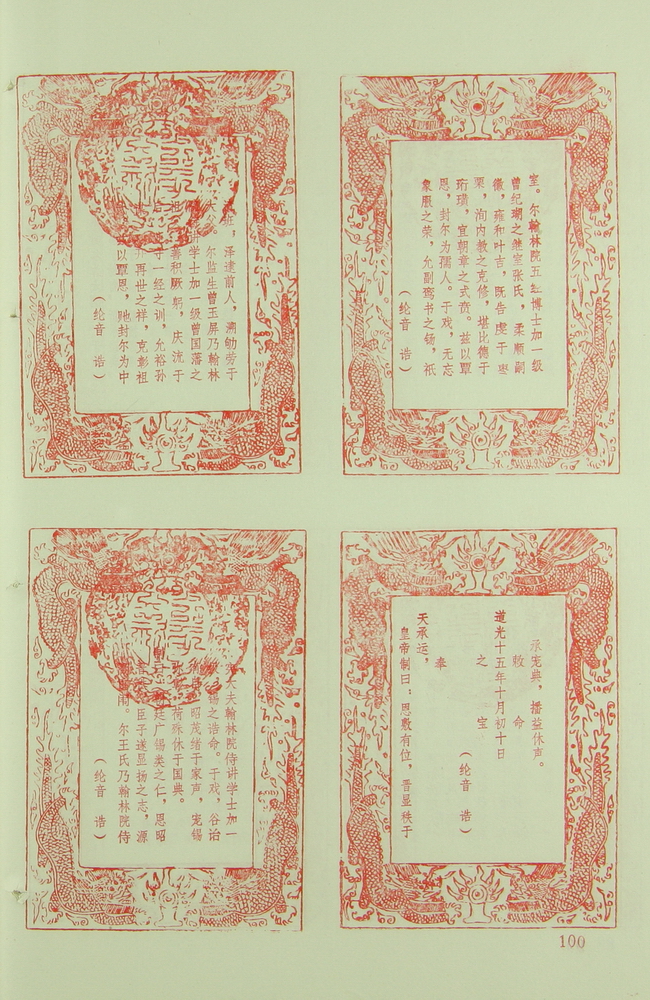 室。尔翰林院五经博士加一级
曾纪瑚之继室张氏,柔顺嗣
徽,雍和叶吉,既告虔于枣
栗,洵内教之克修,堪比德于
珩璜,宜朝章之式贲。兹以覃
恩,封尔为孺人。于戏,无忘
象服之荣,允副鸾书之锡,祗
(纶音 诰)
承宠典,播益休声。
敕 命
道光十五年十月初十日
之 宝
(纶音 诰)
奉
天承运,
皇帝制曰:恩敷有位,晋显秩于
,泽逮前人,溯劬劳于
尔监生曾玉屏乃翰林
学士加一级曾国藩之
善积厥躬,庆流于
守一经之训,允裕孙
再世之祥,克彰祖
以覃恩,貤封尔为中
(纶音 诰)
大夫翰林院侍讲学士加一
锡之诰命。于戏,谷诒
昭茂绪于家声,宠锡
荷殊休于国典。
廷广锡类之仁,恩昭
臣子遂显扬之志,源
闱。尔王氏乃翰林院侍
(纶音 诰)
100